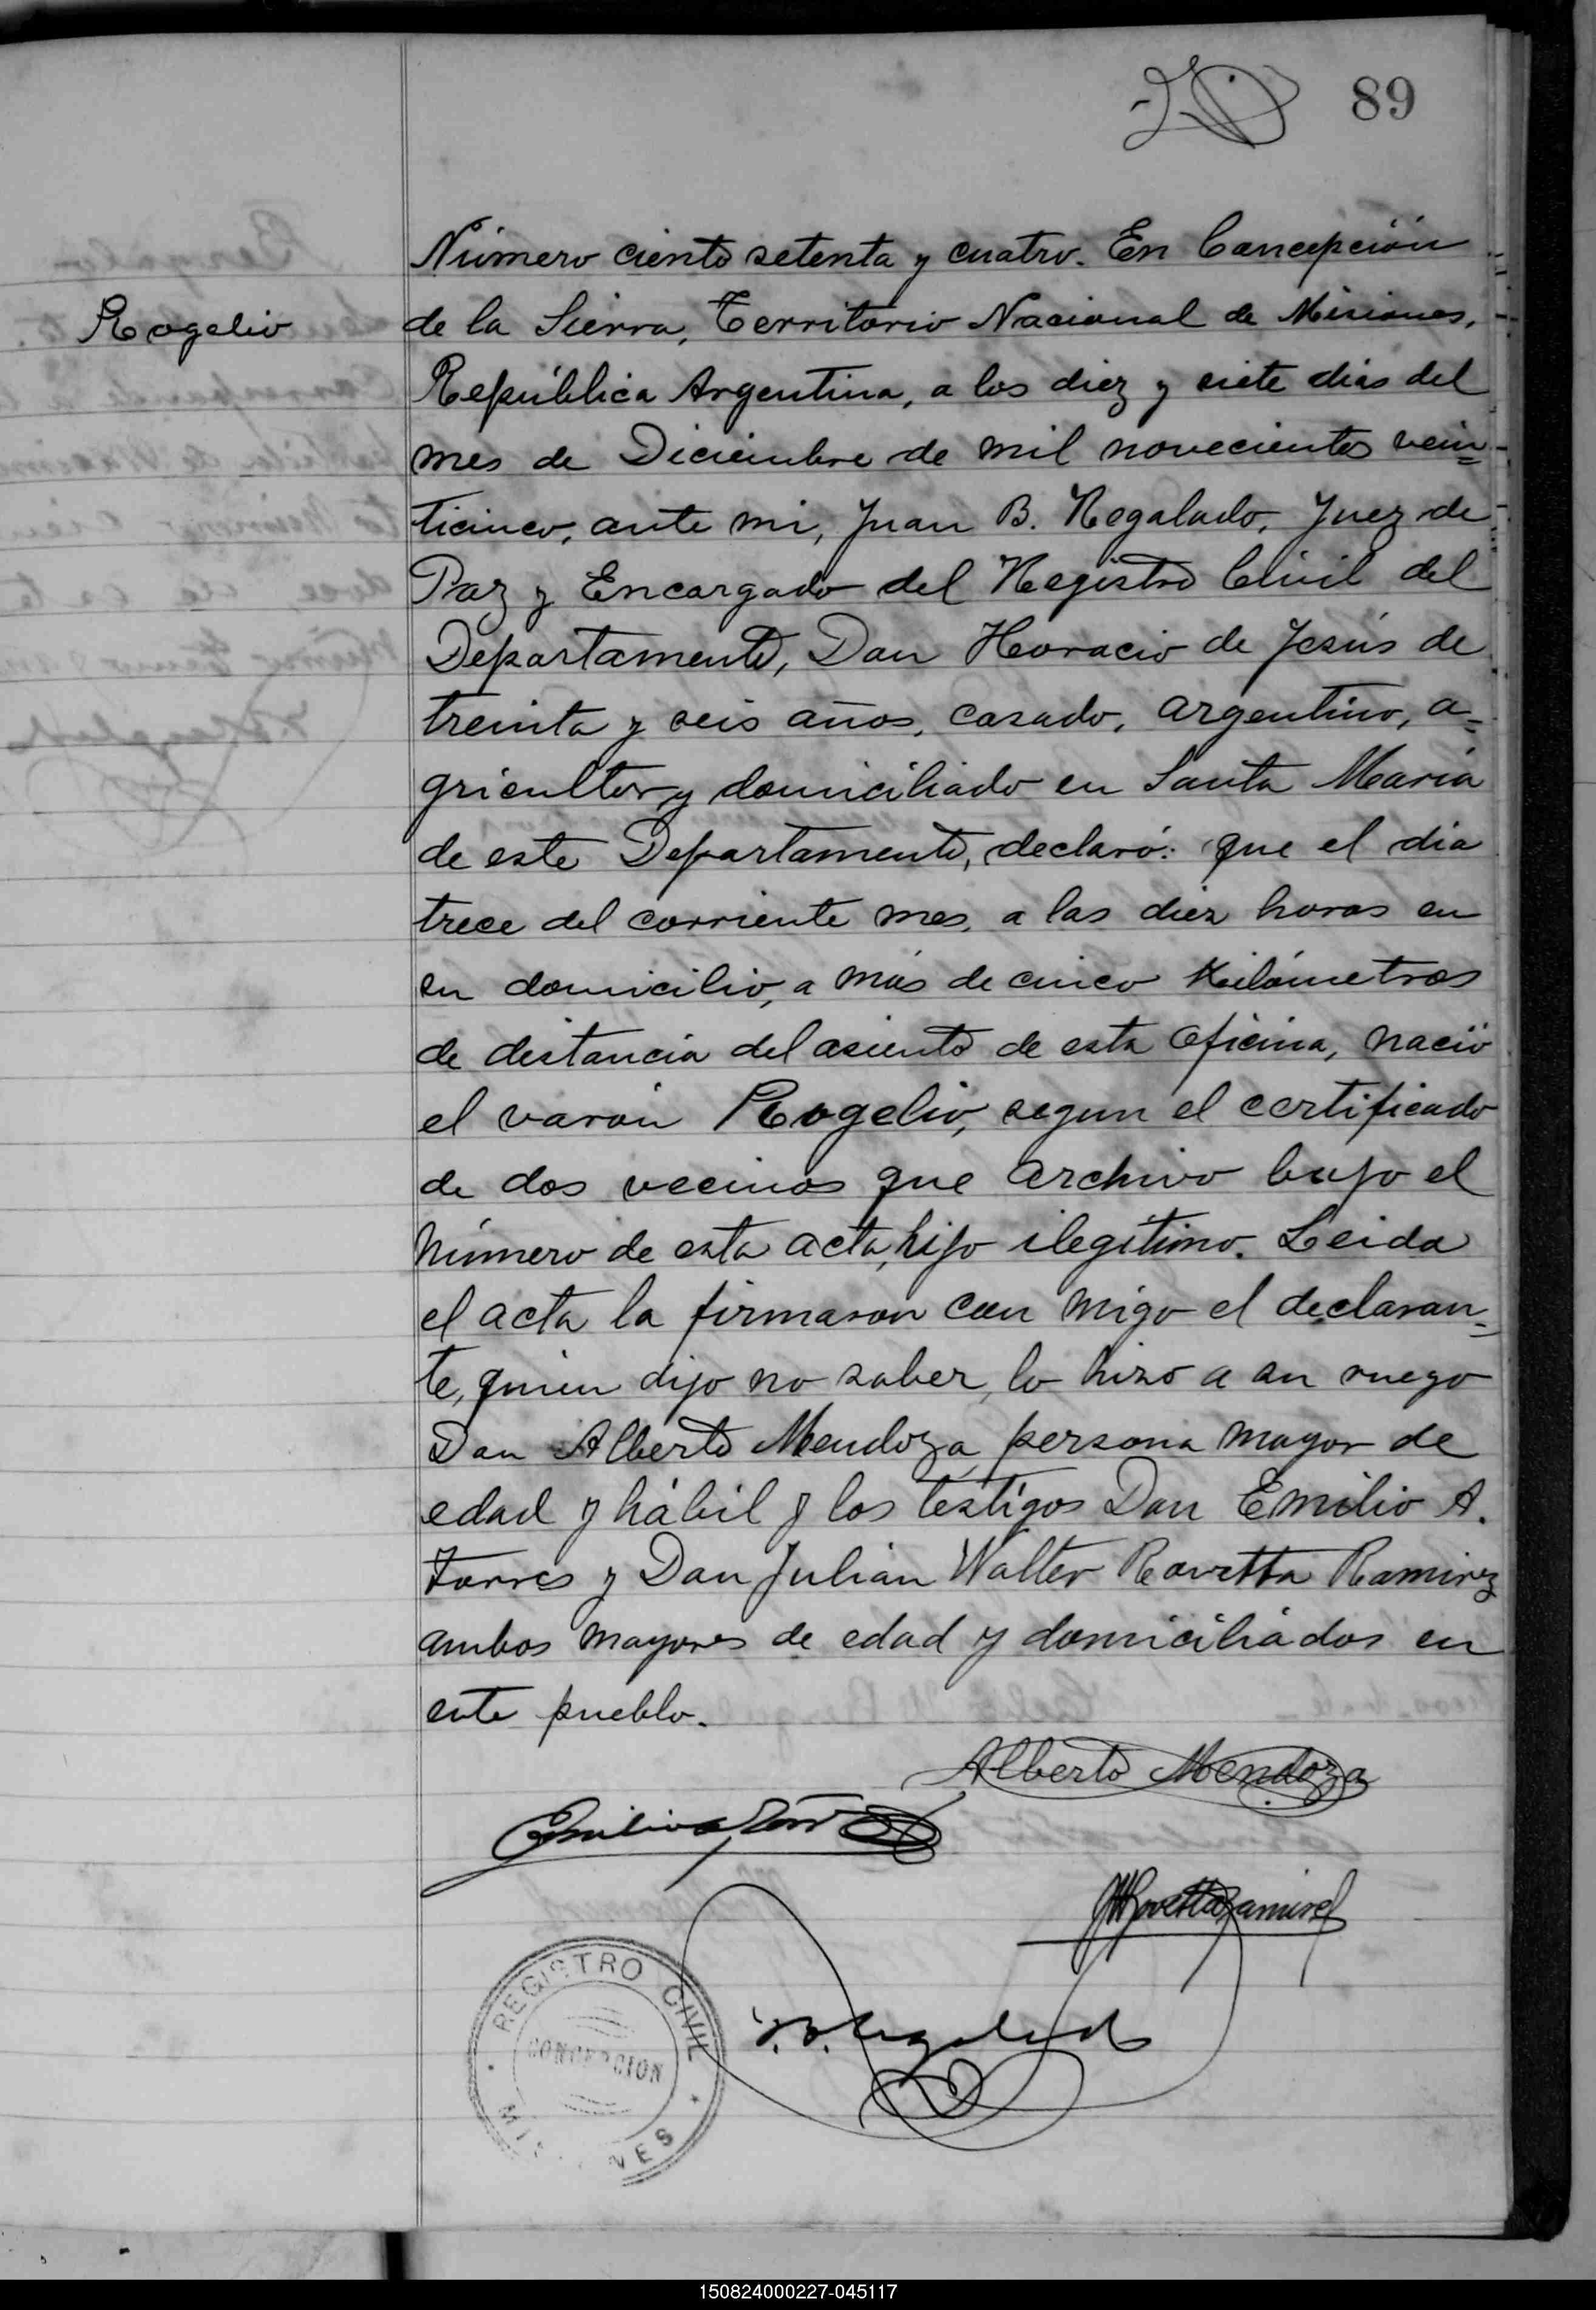 89
Rogelio
Número ciento setenta y cuatro. En Concepción
de la Sierra, Territorio Nacional de Misiones,
República Argentina, a los diez y siete dias del
mes de Diciembre de mil novecientos vein=
ticinco, ante mi, Juan B. Regalado, Juez de
Paz y Encargado del Registro Civil del
Departamento, Don Horacio de Jesús de
treinta y seis años, casado, argentino, a=
gricultor y domiciliado en Santa María
de este Departamento, declaró: que el dia
trece del corriente mes, a las diez horas en
su domicilio, a más de cinco Kilómetros
de distancia del asiento de esta oficina, nació
el varón Rogelio, segun el certificado
de dos vecinos que archivo bajo el
número de esta acta, hijo ilegítimo. Leida
el acta la firmaron con migo el declaran=
te, quien dijo no saber, lo hizo a su ruego
Don Alberto Mendoza persona mayor de
edad y hábil y los testigos Don Emilio A.
Torres y Don Julián Walter Rovetta Ramirez
ambos mayores de edad y domiciliados en
este pueblo.
Alberto Mendoza
Emilio A Torres
JWRovettaRamirez
J.B. Regalado
REGISTRO CIVIL
CONCEPCION
MISIONES
150824000227-045117